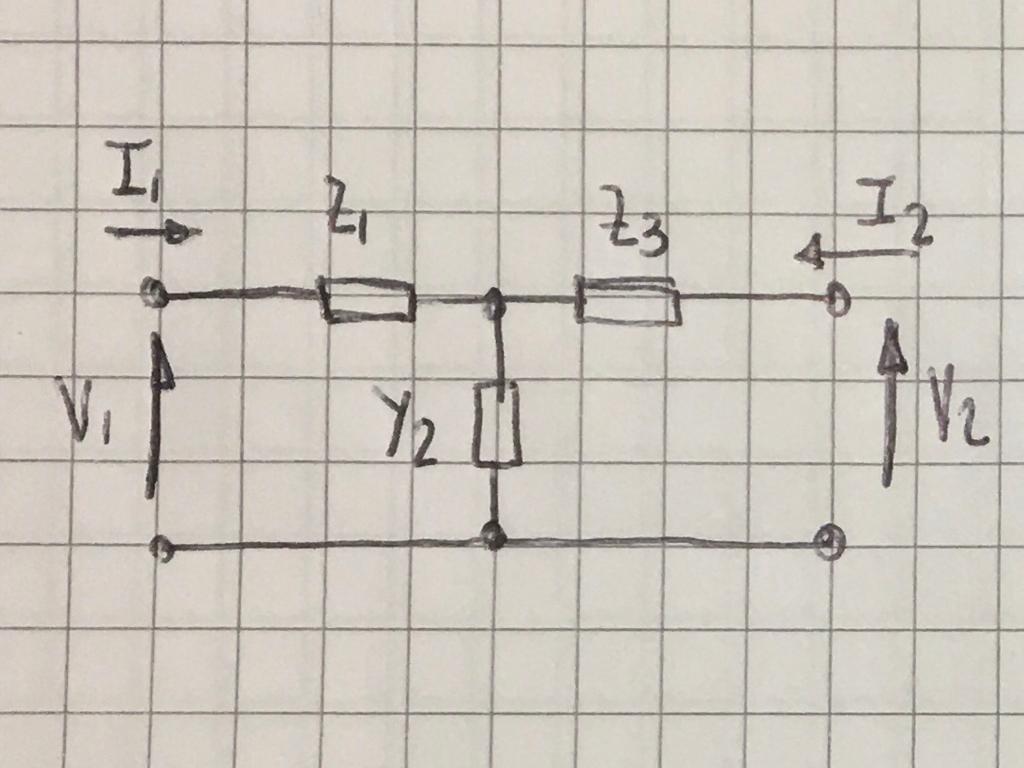 I₁
Z₁
Z₃
I₂
V₁
Y₂
V₂